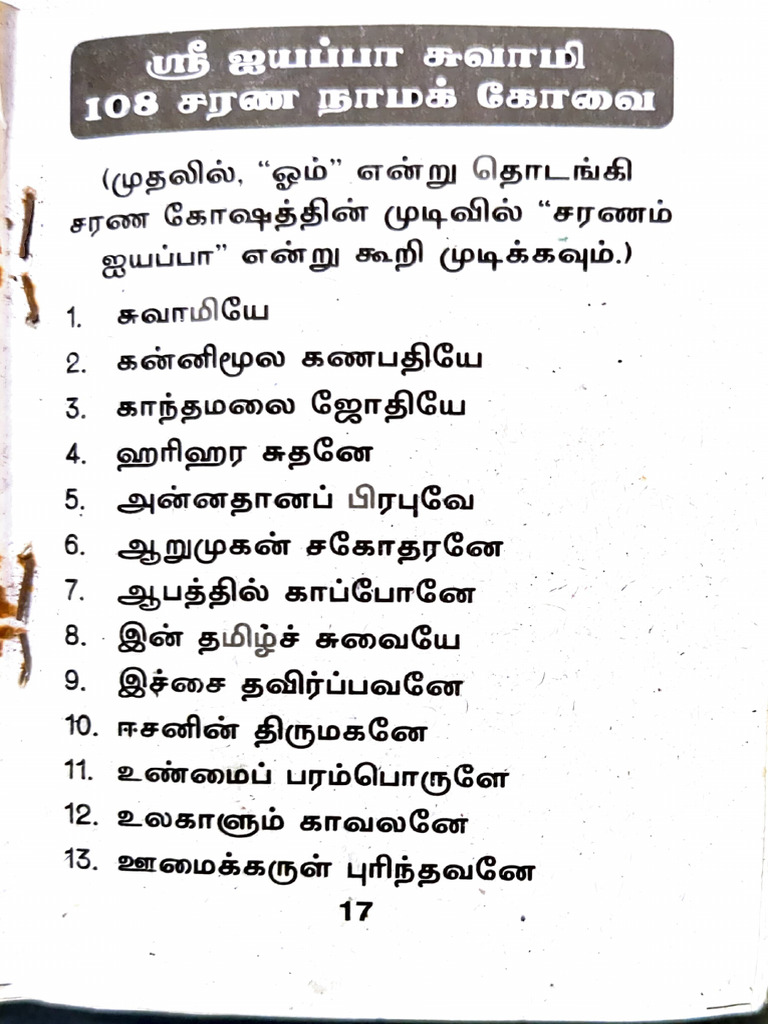 ஸ்ரீ ஐயப்பா சுவாமி
108 சரண நாமக் கோவை
(முதலில், “ஓம்” என்று தொடங்கி
சரண கோஷத்தின் முடிவில் “சரணம்
ஐயப்பா” என்று கூறி முடிக்கவும்.)
1. சுவாமியே
2. கன்னிமூல கணபதியே
3. காந்தமலை ஜோதியே
4. ஹரிஹர சுதனே
5. அன்னதானப் பிரபுவே
6. ஆறுமுகன் சகோதரனே
7. ஆபத்தில் காப்போனே
8. இன் தமிழ்ச் சுவையே
9. இச்சை தவிர்ப்பவனே
10. ஈசனின் திருமகனே
11. உண்மைப் பரம்பொருளே
12. உலகாளும் காவலனே
13. ஊமைக்கருள் புரிந்தவனே
17